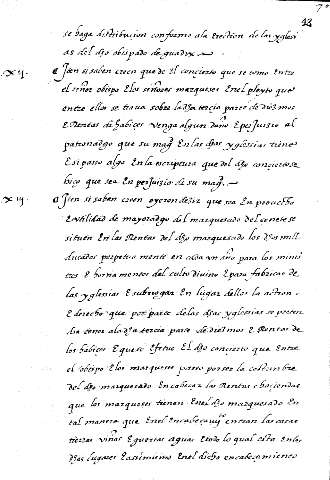 se haga distribuicion conforme a la erection de las yglesi
as del dho obispado de guadix
xij. Iten si saben creen que de el concierto que se tomo Entre
el señor obispo E los señores marqueses En el pleyto que
entre ellos se trata sobre la dha tercia parte de diezmos
E Rentas de habices venga algun daño E perjuicio al
patronadgo que su magd En las dhas yglesias tiene
E si passo algo En la escriptura que del dho concierto se
hizo que sea En perjuicio de su magd.
xiij. Iten si saben creen oyeron dezir que sea En provecho
E utilidad de mayoradgo del marquesado del cenete se
situen En las Rentas del dho marquesado los dhos mill
ducados perpetuamente en cada un año para los minis
tros E hornamentos del culto divino E para fabricas de
las yglesias E subrrogar En lugar dellos la action
E derecho que por parte de las dhas yglesias se preten
dia tener a la dha tercia parte de diezmos E Rentas de
los habices E que se Efetue El dho concierto que Entre
el obispo E los marqueses
del dho marquesado En cabeçar las Rentas
que los marqueses tienen En el dho marquesado En
tal manera que En el Encabeçamiº entran las
tierras viñas E guertas aguas E todo lo qual esta En los
dhos lugares E assimismo En el dicho encabeçamiento